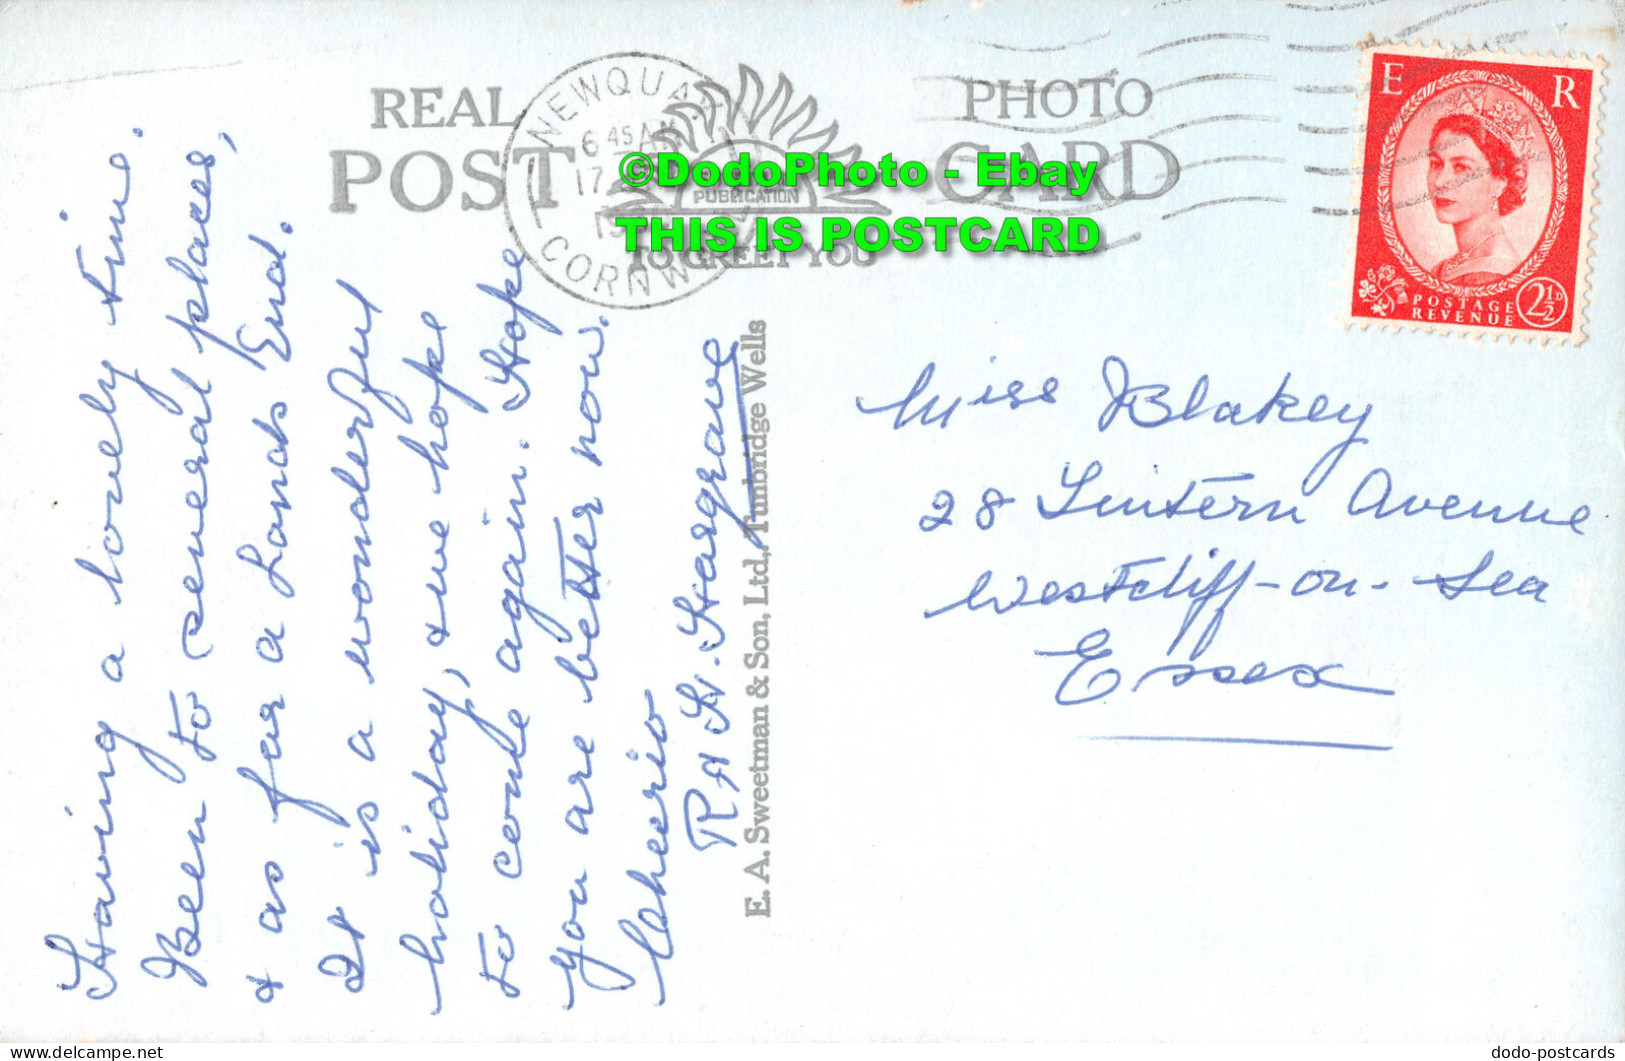 REAL PHOTO
POST CARD
NEWQUAY
6 45 AM
17
CORNW
PUBLICATION
TO GREET YOU
©DodoPhoto - Ebay
THIS IS POSTCARD
E R
POSTAGE
REVENUE
2½D
Having a lovely time.
Been to several places,
& as far a Lands End.
It is a wonderful
holiday, & we hope
to come again. Hope
you are better now.
Cheerio
R A H. Hargrave
E. A. Sweetman & Son, Ltd., Tunbridge Wells
Miss Blakey
28 Lintern Avenue
Westcliff-on-Sea
Essex
dodo-postcards